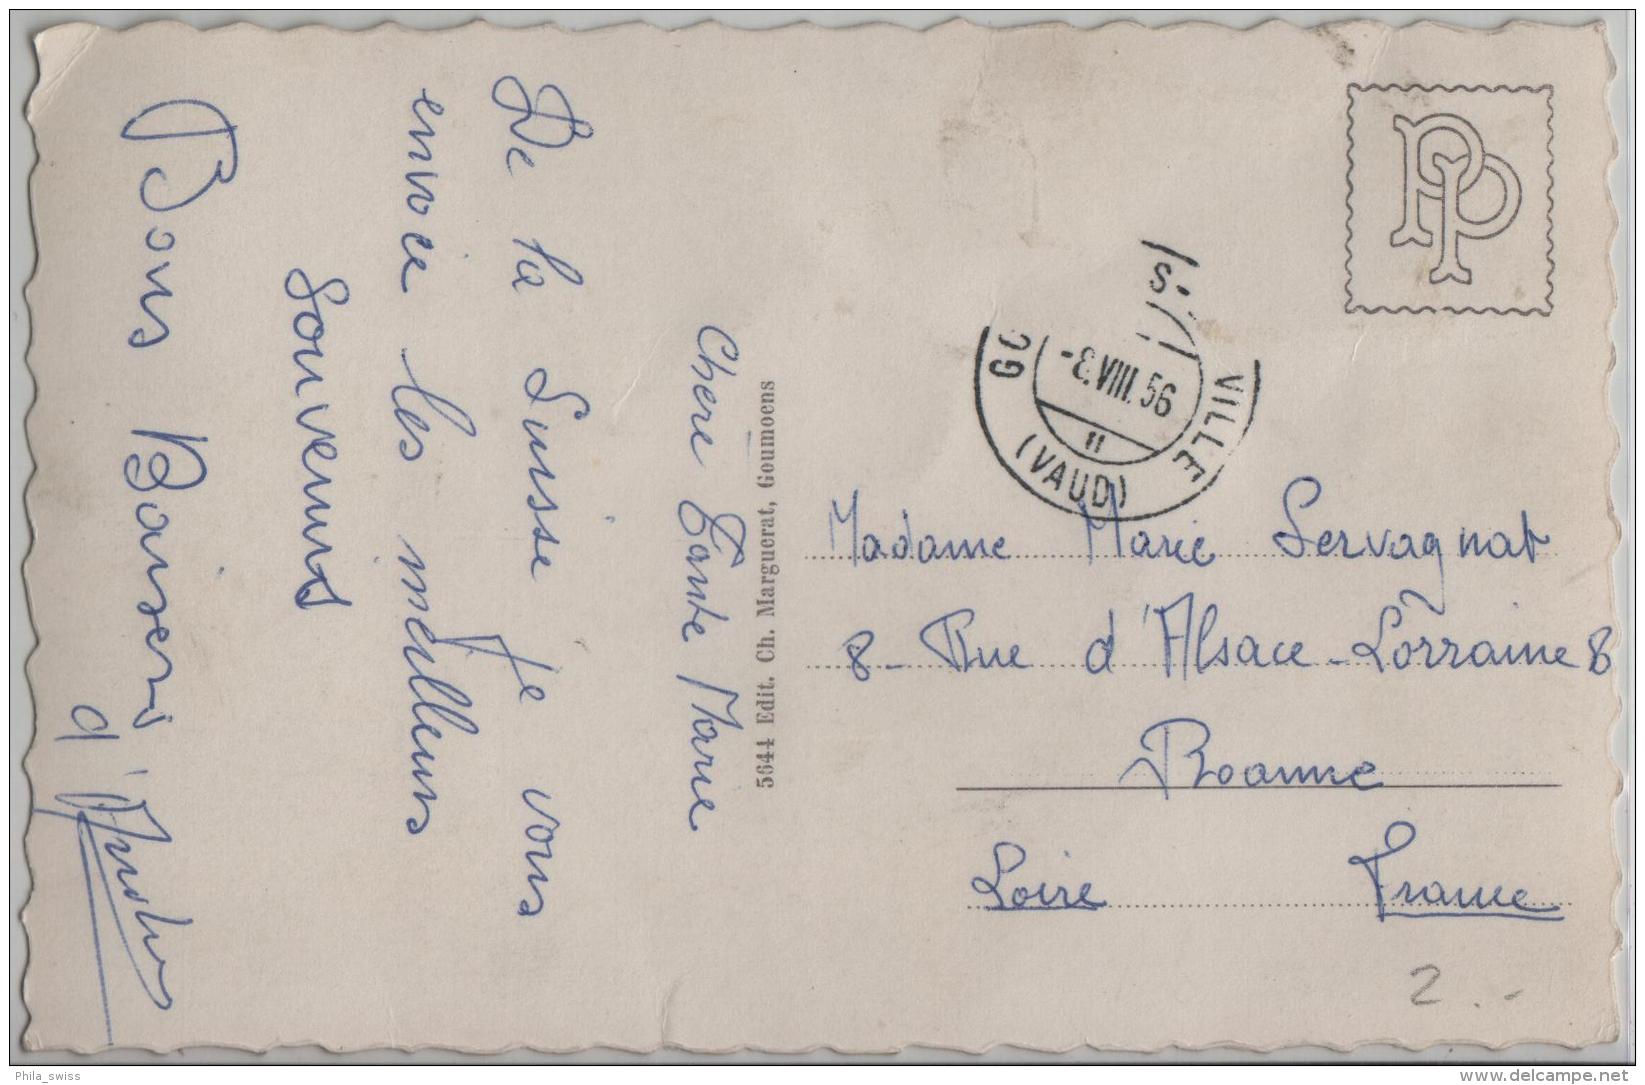 Chère Tante Marie
De la Suisse je vous
envoie les meilleurs
souvenirs
Bons Baisers
d'
5644 Edit. Ch. Marguerat, Goumoens
PP
VILLE
-8.VIII.56
11
(VAUD)
Madame Marie Servagnat
8 - Rue d'Alsace-Lorraine 8
Roanne
Loire France
2.-
Phila_swiss
www.delcampe.net